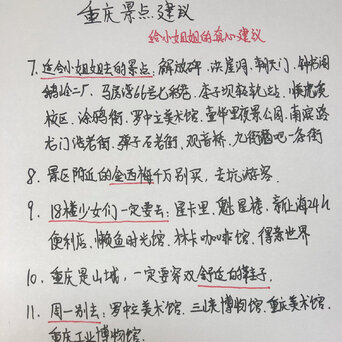 重庆景点建议
给小姐姐的真心建议
7. 适合小姐姐去的景点: 解放碑、洪崖洞、朝天门、钟书阁
二厂、马房湾66号七稻巷、李子坝轻轨站、
校区、涂鸦街、罗中立美术馆、壹华里夜景公园、南滨路
龙门浩老街、弹子石老街、观音桥、九街酒吧一条街
8. 景区附近的金西梅千万别买, 去坑游客.
9. 18楼少女们一定要去: 星卡里、魁星楼、新上海24h
便利店、懒鱼时光馆、林卡咖啡馆、得意世界
10. 重庆是山城, 一定要穿双舒适的鞋子.
11. 周一别去: 罗中立美术馆、三峡博物馆、重庆美术馆、
重庆工业博物馆.